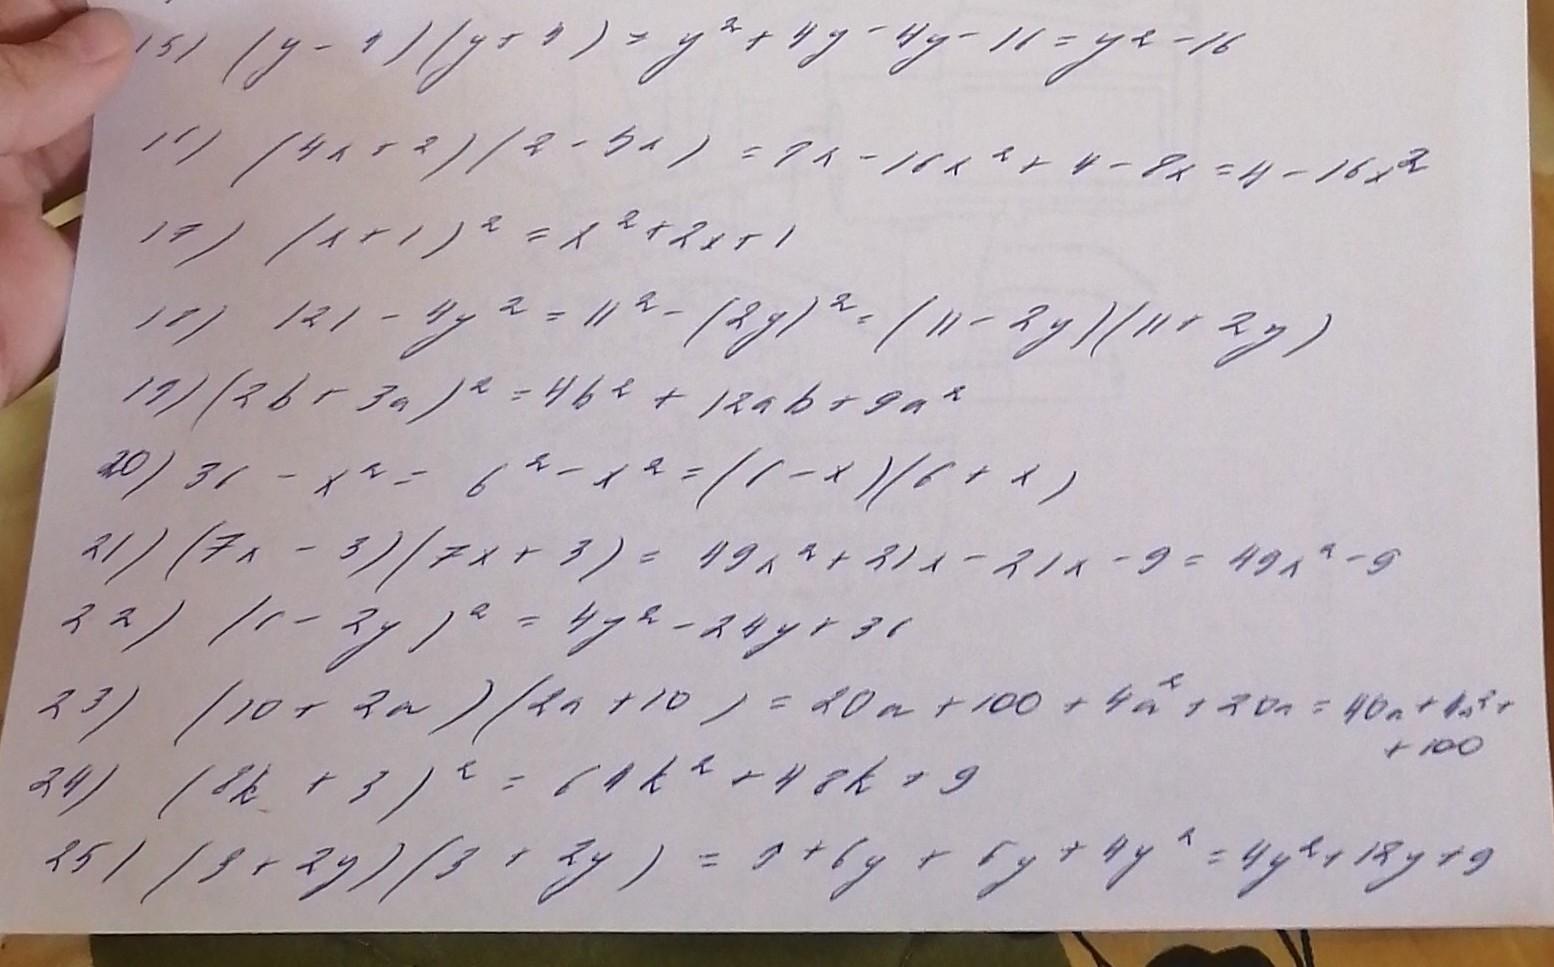 15) (y - 4)(y + 4) = y² + 4y - 4y - 16 = y² - 16
16) (4x + 2)(2 - 4x) = 8x - 16x² + 4 - 8x = 4 - 16x²
17) (x + 1)² = x² + 2x + 1
18) 121 - 4y² = 11² - (2y)² = (11 - 2y)(11 + 2y)
19) (2b + 3a)² = 4b² + 12ab + 9a²
20) 36 - x² = 6² - x² = (6 - x)(6 + x)
21) (7x - 3)(7x + 3) = 49x² + 21x - 21x - 9 = 49x² - 9
22) (6 - 2y)² = 4y² - 24y + 36
23) (10 + 2a)(2a + 10) = 20a + 100 + 4a² + 20a = 40a + 4a² +
+ 100
24) (8k + 3)² = 64k² + 48k + 9
25) (3 + 2y)(3 + 2y) = 9 + 6y + 6y + 4y² = 4y² + 12y + 9